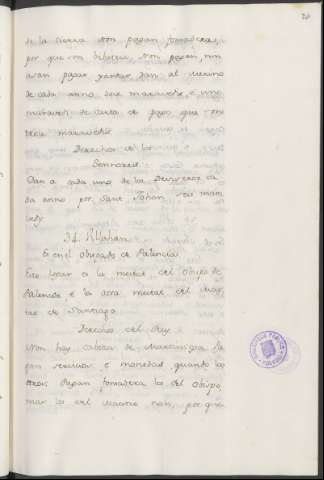 20
de la tierra non pagan fonsadera,
por que en behetria, non pagan, nin
a an pagar yantar, dan al Merino
de cada anno seis maravedis, e uno
maravedi de carta de pago que son
trece maravedis
Derechos de los
Sennores
Dan a cada uno de los Deviseros ca
da anno por Sant Johan seis mara
vedis
34. Villahan
E en el Obispado de Palencia
Este logar a la meitad del Obispo de
Palencia e la otra meitad del Maes
tre de Santiago
Derechos del Rey
Non hay cabeza de Martiniega pa
gan servicios e monedas quando los
otros. Pagan fonsadera los del Obispo,
mas los del Maestre non, por que